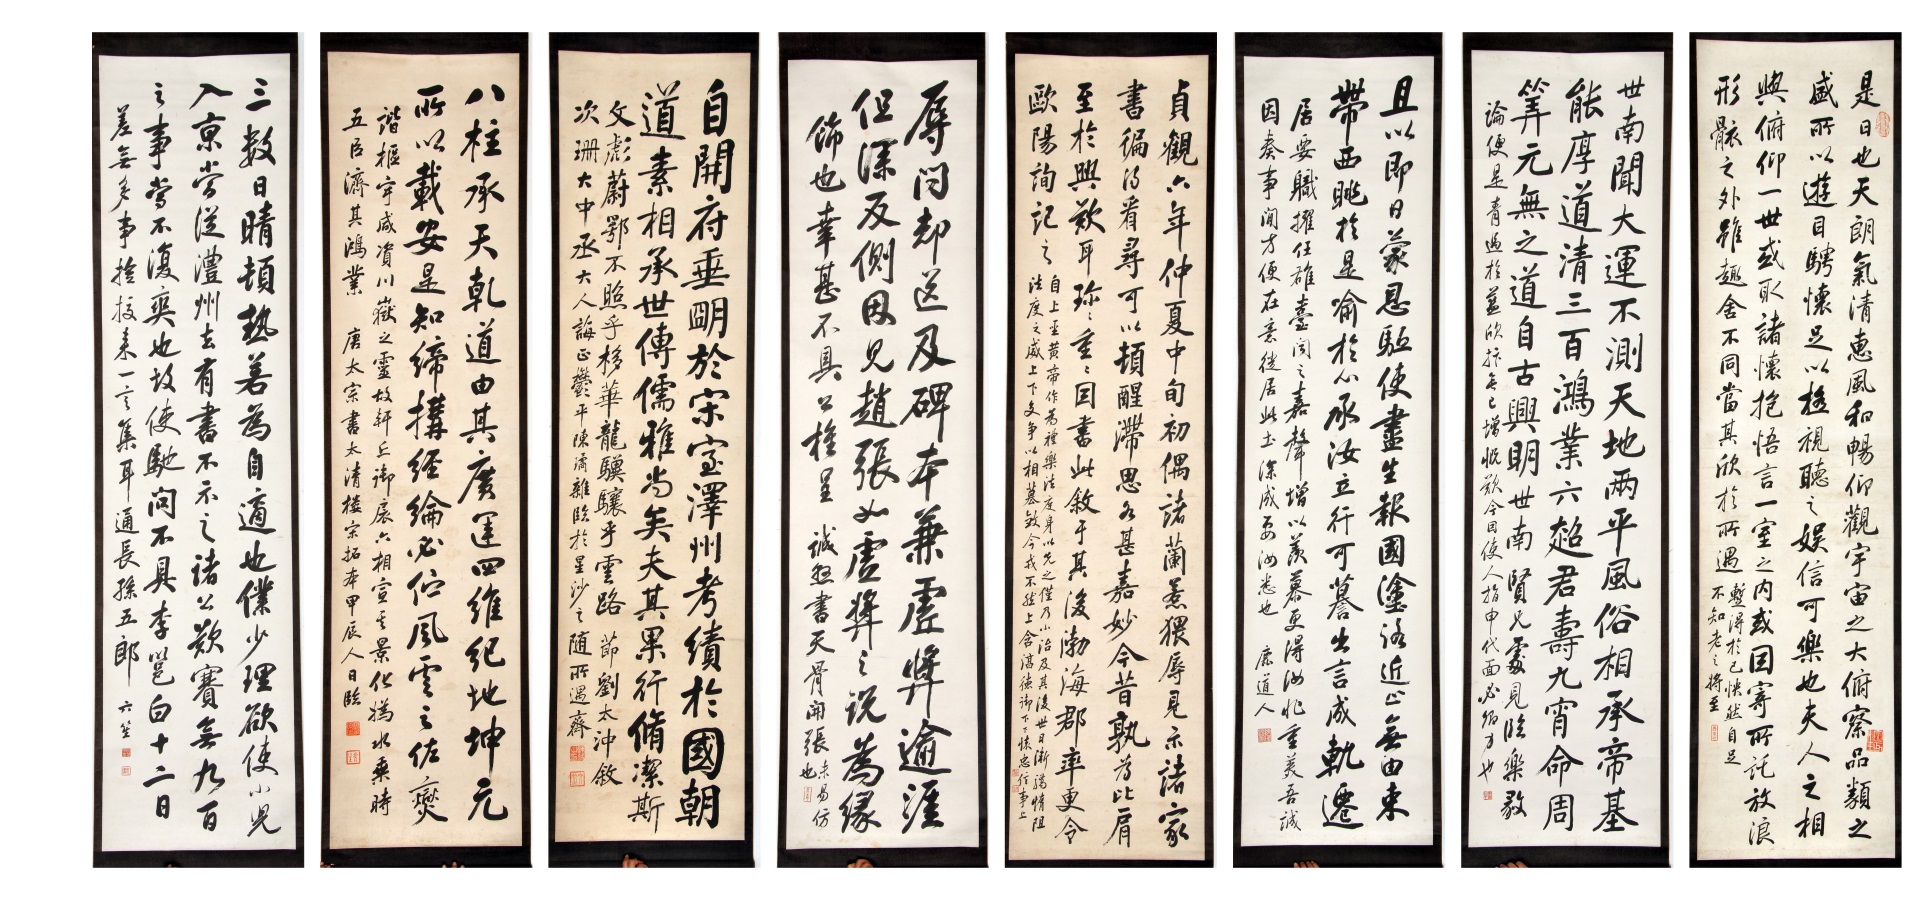 是日也天朗氣清惠風和暢仰觀宇宙之大俯察品類之
盛所以遊目騁懷足以極視聽之娛信可樂也夫人之相
與俯仰一世或取諸懷抱悟言一室之內或因寄所託放浪
形骸之外雖趣舍不同當其欣於所遇
暫得於己怏然自足
不知老之將至
世南聞大運不測天地兩平風俗相承帝基
能厚道清三百鴻業六超君壽九霄命周
筭元無之道自古興明世南
論便是青過於藍欣抃
且以即日蒙恩驅使盡生報國塗路近止無由束
帶西眺於是喻於心承汝立行可䇿出言成軌遷
居要職擢任雄臺聞之嘉聲增以羨慕更得汝兆重美吾誠
因奏事閒方便在意
康道人
貞觀六年仲夏中旬初偶諸蘭惹猥辱見示諸家
書徧得看尋可以頓醒滯思為甚嘉妙今昔孰為比肩
至於興歎耳珍〻重〻因書此敘于其後渤海郡率更令
歐陽詢記之
辱問却送及碑本兼虛弊逾涯
但深反側因見趙張如虛弊之説為緣
飾也幸甚不具公權呈
誠懸書天骨開張未易仿
也
自開府垂明於宋室澤州考績於國朝
道素相承世傳儒雅尚矣夫其果行脩潔斯
文彪蔚鄂不照乎移華龍驥驤乎雲路
節劉太沖敘
次珊大中丞大人誨正
臨於星沙之随所遇齋
八柱承天乾道由其廣運四維紀地坤元
所以載安是知締構經綸必佇風雲之佐爕
諧樞宇咸資川嶽之靈故軒丘御扆六相宣其景化媯水乘時
五臣濟其鴻業
唐太宗書太清樓宋拓本甲辰人日臨
三數日晴頓熱若為自適也僕少理欲使小兒
入京嘗從澧州去有書不示之諸公歎賽無九百
之事當不復奭也故使馳問不具李邕白十二日
差無多事
通長孫五郎
六笙